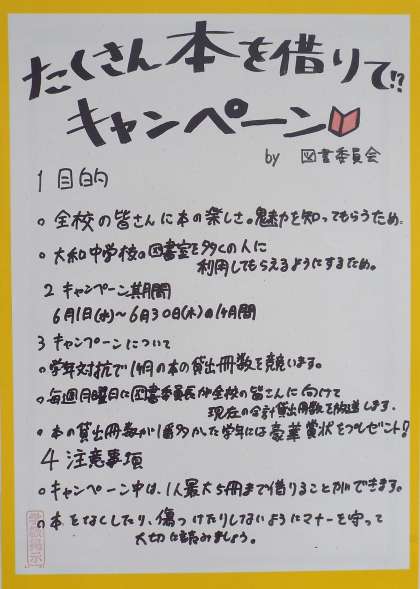 たくさん本を借りて!?
キャンペーン
by 図書委員会
1 目的
○ 全校の皆さんに本の楽しさ。魅力を知ってもらうため。
○ 大和中学校の図書室を多くの人に
利用してもらえるようにするため。
2 キャンペーン期間
6月1日(水)～6月30日(木)の1ヶ月間
3 キャンペーンについて
○学年対抗で1ヶ月の本の貸出冊数を競います。
○毎週月曜日に図書委員長が全校の皆さんに向けて
現在の合計貸出冊数を放送します。
○ 本の貸出冊数が1番多かった学年には豪華賞状をプレゼント!
4 注意事項
○キャンペーン中は、1人最大5冊まで借りることができます。
○本をなくしたり、傷つけたりしないようにマナーを守って
大切に読みましょう。